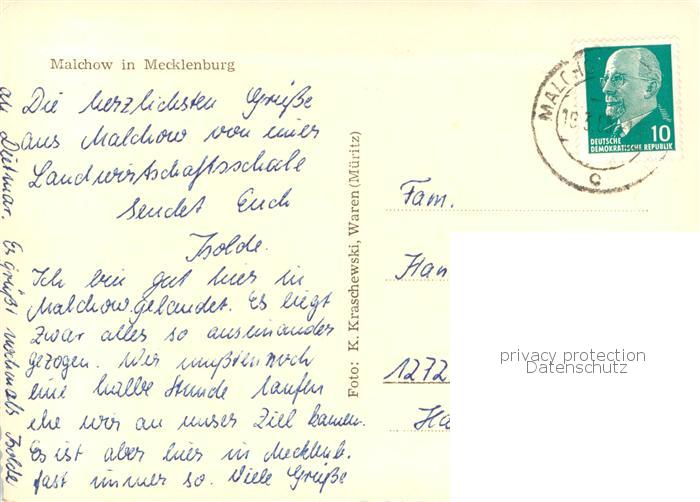 Malchow in Mecklenburg
Die herzlichsten Grüße
aus Malchow von einer
Landwirtschaftsschale
sendet Euch
Isolde.
Ich bin gut hier in
Malchow gelandet. Es liegt
zwar alles so auseinander
gezogen. Wir mußten noch
eine halbe Stunde laufen
ehe wir an unser Ziel kamen.
Es ist aber hier in Mecklenb.
fast immer so. Viele Grüße
an Dietmar. Es grüßt nochmals Isolde
Foto: K. Kraschewski, Waren (Müritz)
MALCH
19.3.
C
10
DEUTSCHE
DEMOKRATISCHE REPUBLIK
Fam.
Han
1272
Ha
privacy protection
Datenschutz